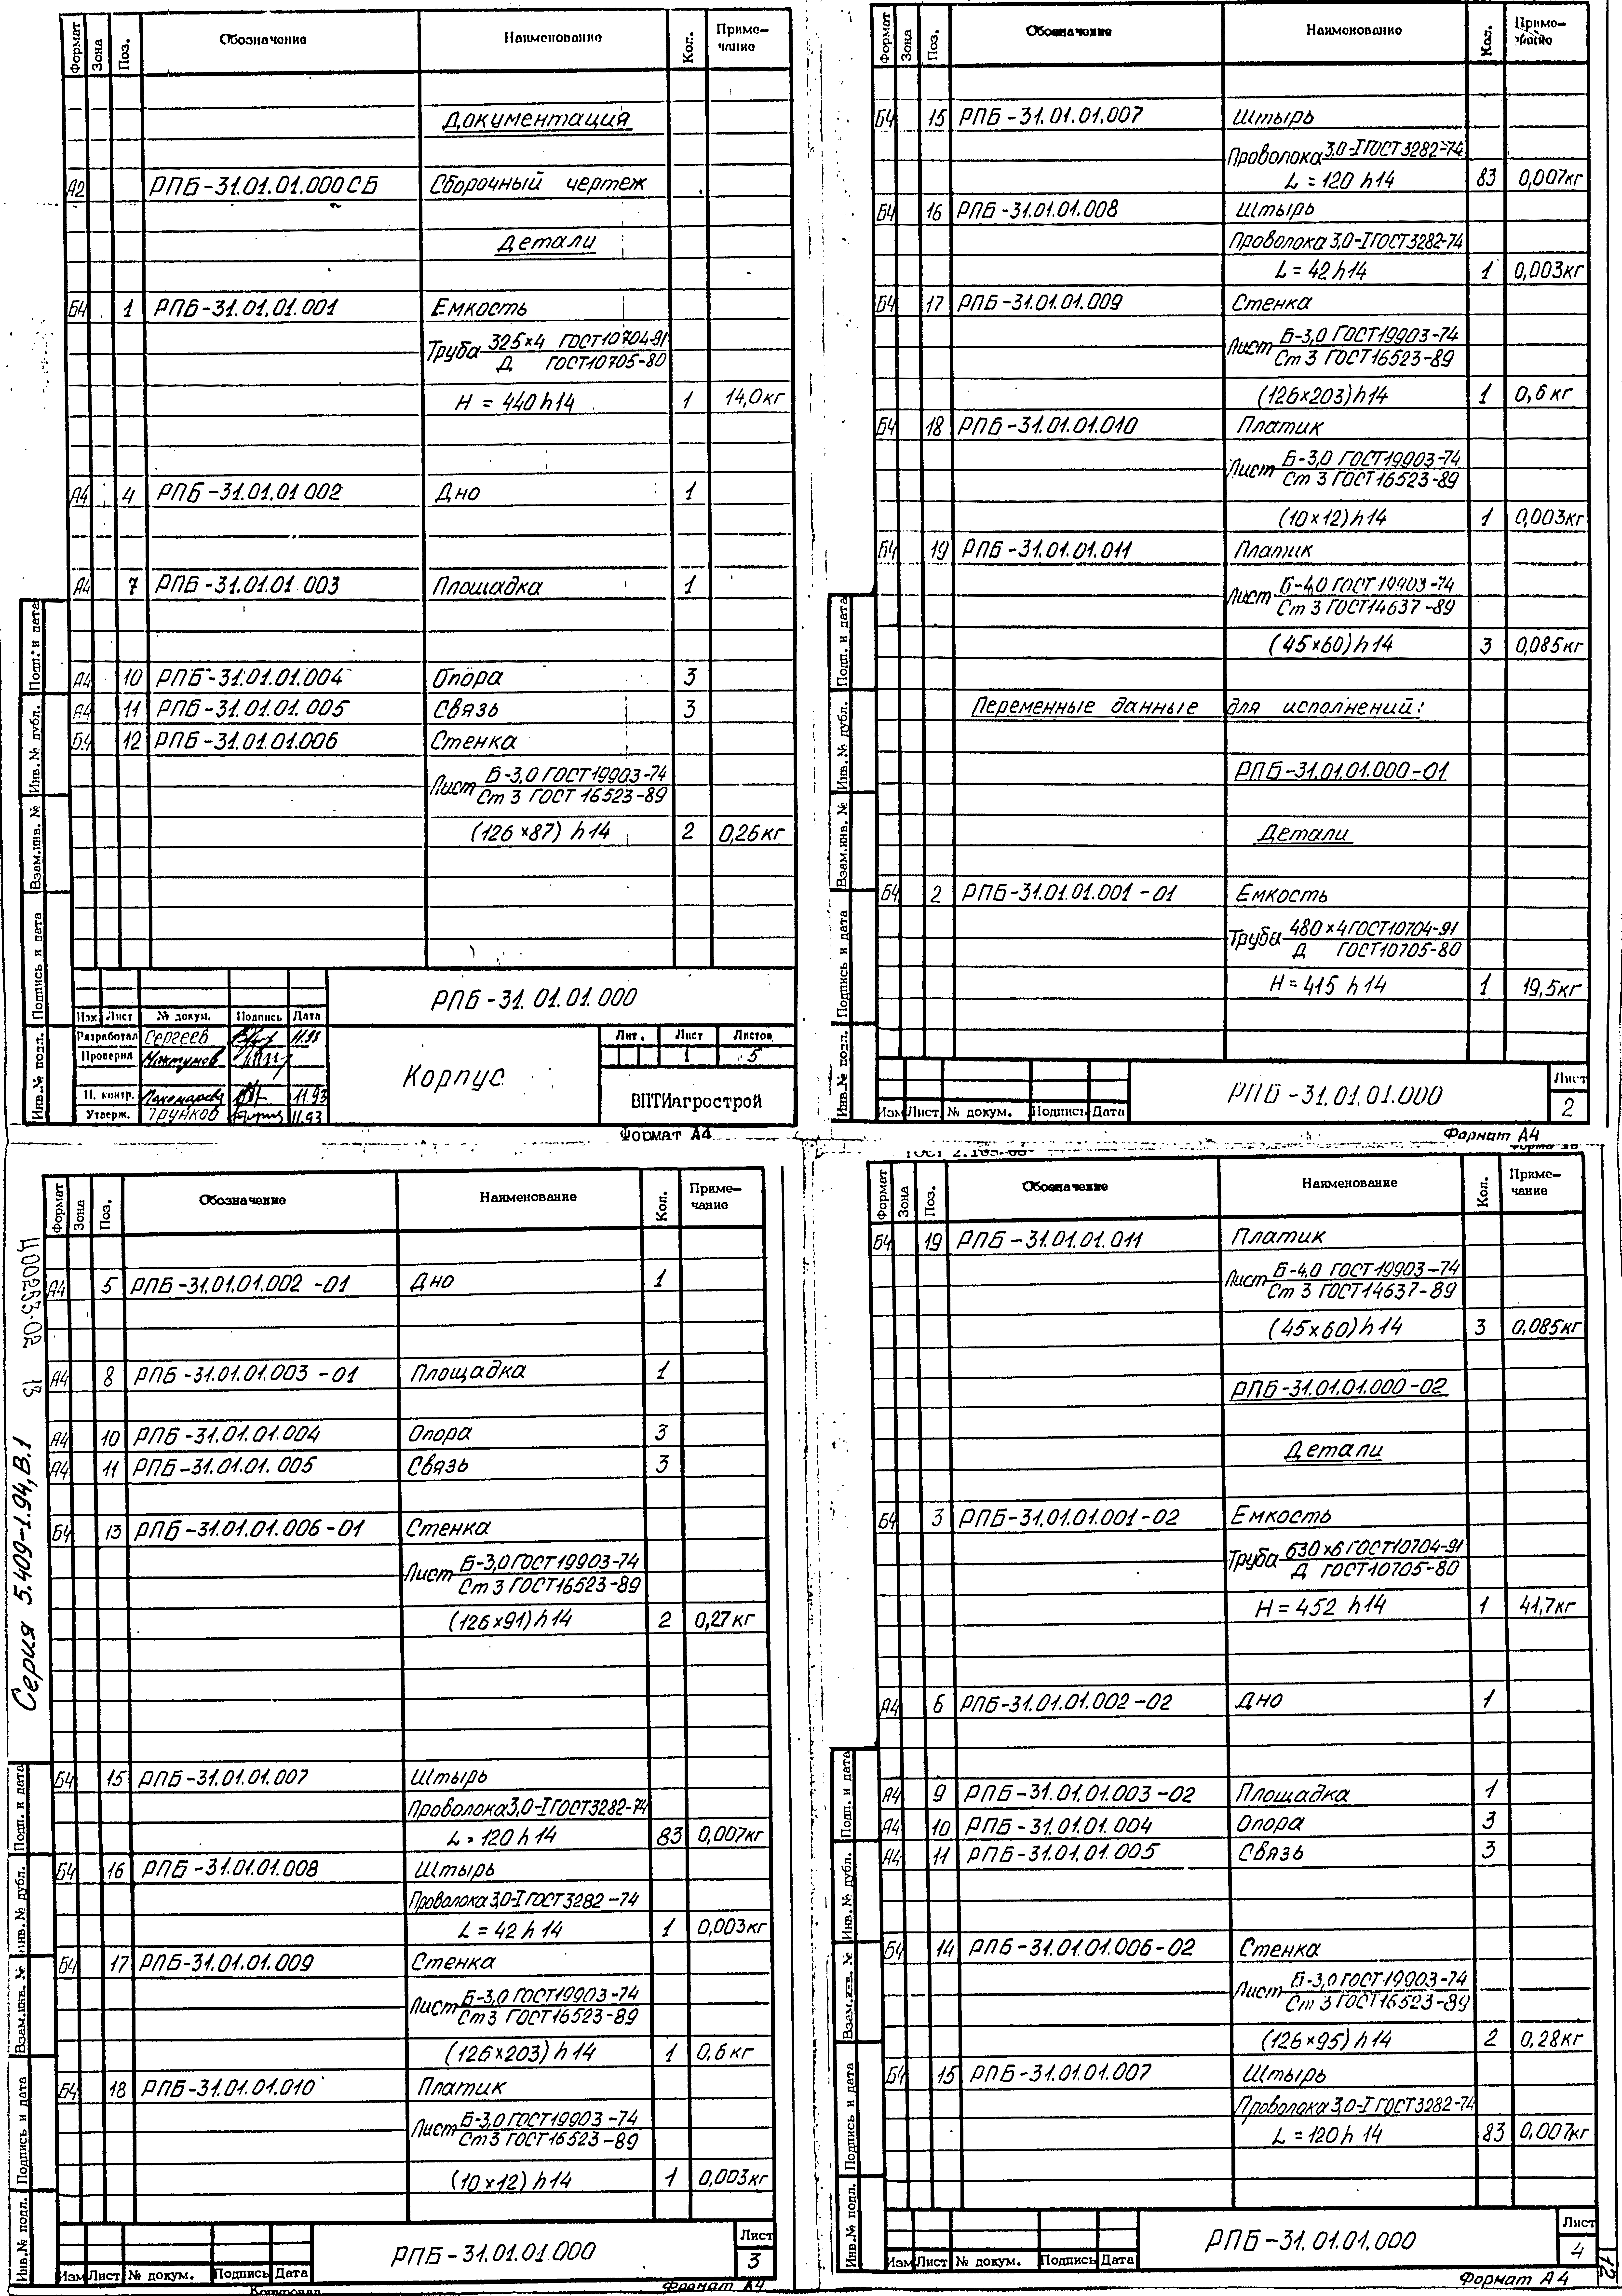 Формат Зона Поз. Обозначение Наименование Кол. Приме-чание
Документация
А2 РПБ-31.01.01.000 СБ Сборочный чертеж
Детали
Б4 1 РПБ-31.01.01.001 Емкость
Труба 325×4 ГОСТ10704-91
Д ГОСТ10705-80
H = 440 h14 1 14,0кг
А4 4 РПБ-31.01.01 002 Дно 1
А4 7 РПБ-31.01.01.003 Площадка 1
А4 10 РПБ-31.01.01.004 Опора 3
А4 11 РПБ-31.01.01.005 Связь 3
Б4 12 РПБ-31.01.01.006 Стенка
Лист Б-3,0 ГОСТ19903-74
Ст 3 ГОСТ 16523-89
(126×87) h14 2 0,26кг
Подп. и дата
Инв.№ дубл.
Взам.инв. №
Подпись и дата
Инв.№ подл.
РПБ-31.01.01.000
Изм Лист № докум. Подпись Дата
Разработал Сергеев 11.93
Проверил
Н. контр. Пономарева 11.93
Утверж. Трунков 11.93
Корпус
Лит. Лист Листов
1 5
ВПТИагрострой
Формат А4
Формат Зона Поз. Обозначение Наименование Кол. Приме-чание
Б4 15 РПБ-31.01.01.007 Штырь
Проволока 3,0-I ГОСТ 3282-74
L = 120 h14 83 0,007кг
Б4 16 РПБ-31.01.01.008 Штырь
Проволока 3,0-I ГОСТ3282-74
L = 42 h14 1 0,003кг
Б4 17 РПБ-31.01.01.009 Стенка
Лист Б-3,0 ГОСТ19903-74
Ст 3 ГОСТ16523-89
(126×203)h14 1 0,6 кг
Б4 18 РПБ-31.01.01.010 Платик
Лист Б-3,0 ГОСТ19903-74
Ст 3 ГОСТ16523-89
(10×12)h14 1 0,003кг
Б4 19 РПБ-31.01.01.011 Платик
Лист Б-4,0 ГОСТ 19903-74
Ст 3 ГОСТ14637-89
(45×60)h14 3 0,085кг
Переменные данные для исполнений:
РПБ-31.01.01.000-01
Детали
Б4 2 РПБ-31.01.01.001-01 Емкость
Труба 480×4 ГОСТ10704-91
Д ГОСТ10705-80
H = 415 h14 1 19,5кг
Подп. и дата
Инв.№ дубл.
Взам.инв. №
Подпись и дата
Инв.№ подл.
Изм Лист № докум. Подпись Дата
РПБ-31.01.01.000
Лист
2
Формат А4
Формат Зона Поз. Обозначение Наименование Кол. Приме-чание
А4 5 РПБ-31.01.01.002-01 Дно 1
А4 8 РПБ-31.01.01.003-01 Площадка 1
А4 10 РПБ-31.01.01.004 Опора 3
А4 11 РПБ-31.01.01.005 Связь 3
Б4 13 РПБ-31.01.01.006-01 Стенка
Лист Б-3,0 ГОСТ19903-74
Ст 3 ГОСТ16523-89
(126×91)h14 2 0,27кг
Б4 15 РПБ-31.01.01.007 Штырь
Проволока 3,0-I ГОСТ3282-74
L = 120 h14 83 0,007кг
Б4 16 РПБ-31.01.01.008 Штырь
Проволока 3,0-I ГОСТ 3282-74
L = 42 h14 1 0,003кг
Б4 17 РПБ-31.01.01.009 Стенка
Лист Б-3,0 ГОСТ19903-74
Ст3 ГОСТ16523-89
(126×203) h14 1 0,6кг
Б4 18 РПБ-31.01.01.010 Платик
Лист Б-3,0 ГОСТ19903-74
Ст3 ГОСТ16523-89
(10×12)h14 1 0,003кг
13
Серия 5.409-1.94, В.1
Подп. и дата
Инв.№ дубл.
Взам.инв. №
Подпись и дата
Инв.№ подл.
Изм Лист № докум. Подпись Дата
РПБ-31.01.01.000
Лист
3
Копировал
Формат А4
Формат Зона Поз. Обозначение Наименование Кол. Приме-чание
Б4 19 РПБ-31.01.01.011 Платик
Лист Б-4,0 ГОСТ19903-74
Ст 3 ГОСТ14637-89
(45×60)h14 3 0,085кг
РПБ-31.01.01.000-02
Детали
Б4 3 РПБ-31.01.01.001-02 Емкость
Труба 630×6 ГОСТ10704-91
Д ГОСТ10705-80
H = 452 h14 1 41,7кг
А4 6 РПБ-31.01.01.002-02 Дно 1
А4 9 РПБ-31.01.01.003-02 Площадка 1
А4 10 РПБ-31.01.01.004 Опора 3
А4 11 РПБ-31.01.01.005 Связь 3
Б4 14 РПБ-31.01.01.006-02 Стенка
Лист Б-3,0 ГОСТ19903-74
Ст 3 ГОСТ16523-89
(126×95)h14 2 0,28кг
Б4 15 РПБ-31.01.01.007 Штырь
Проволока 3,0-I ГОСТ3282-74
L = 120 h14 83 0,007кг
Подп. и дата
Инв.№ дубл.
Взам.инв. №
Подпись и дата
Инв.№ подл.
Изм Лист № докум. Подпись Дата
РПБ-31.01.01.000
Лист
4
Формат А4
12